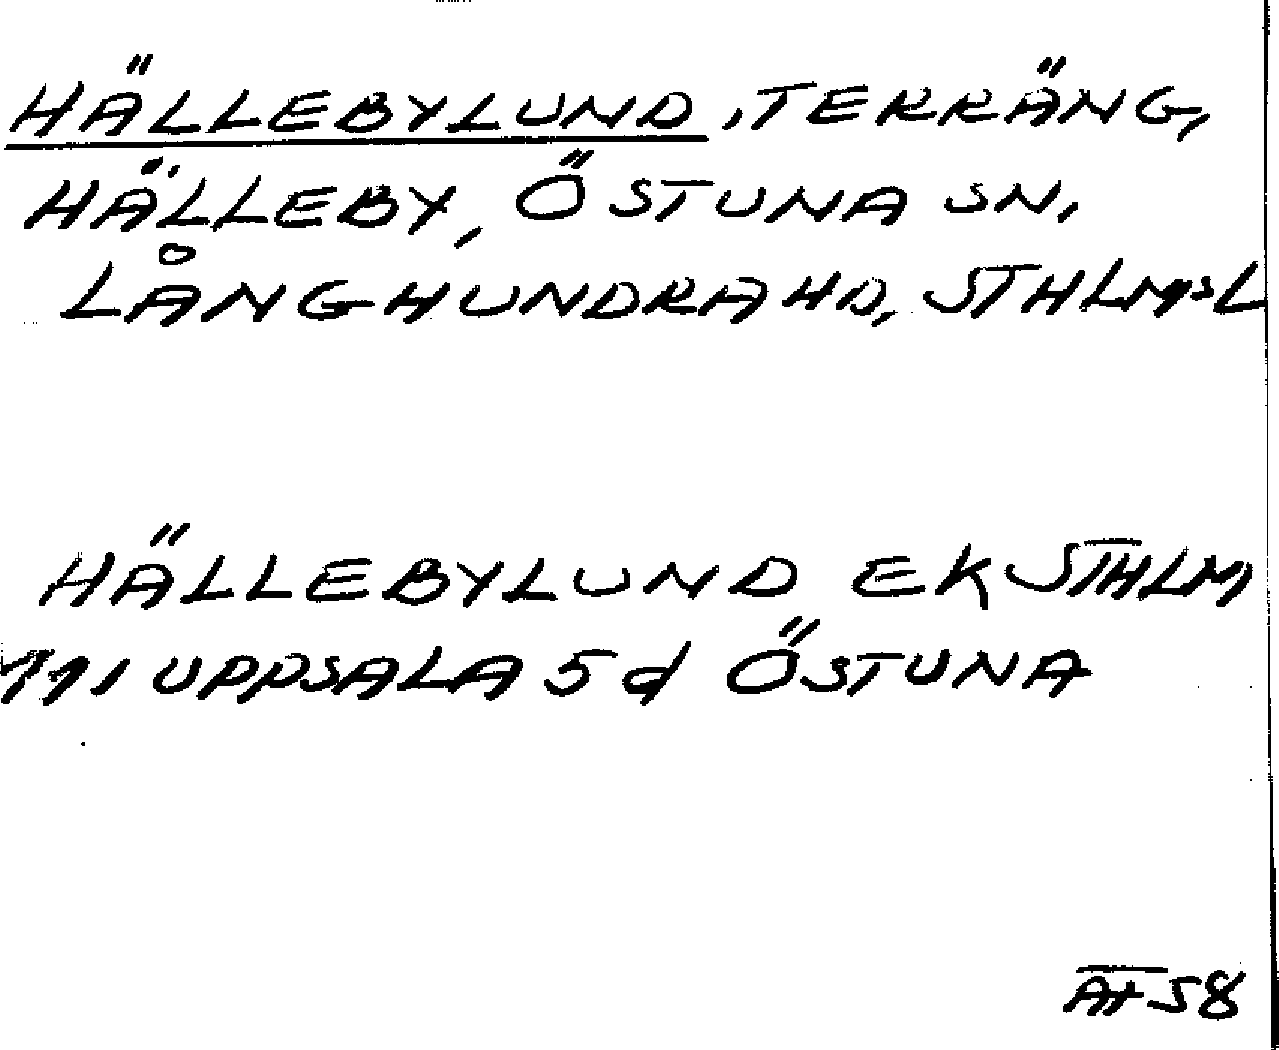 HÄLLEBYLUND, TERRÄNG,
HÄLLEBY, ÖSTUNA SN,
LÅNGHUNDRA HD, STHLMSL
HÄLLEBYLUND EK STHLM
111 UPPSALA 5d ÖSTUNA
58